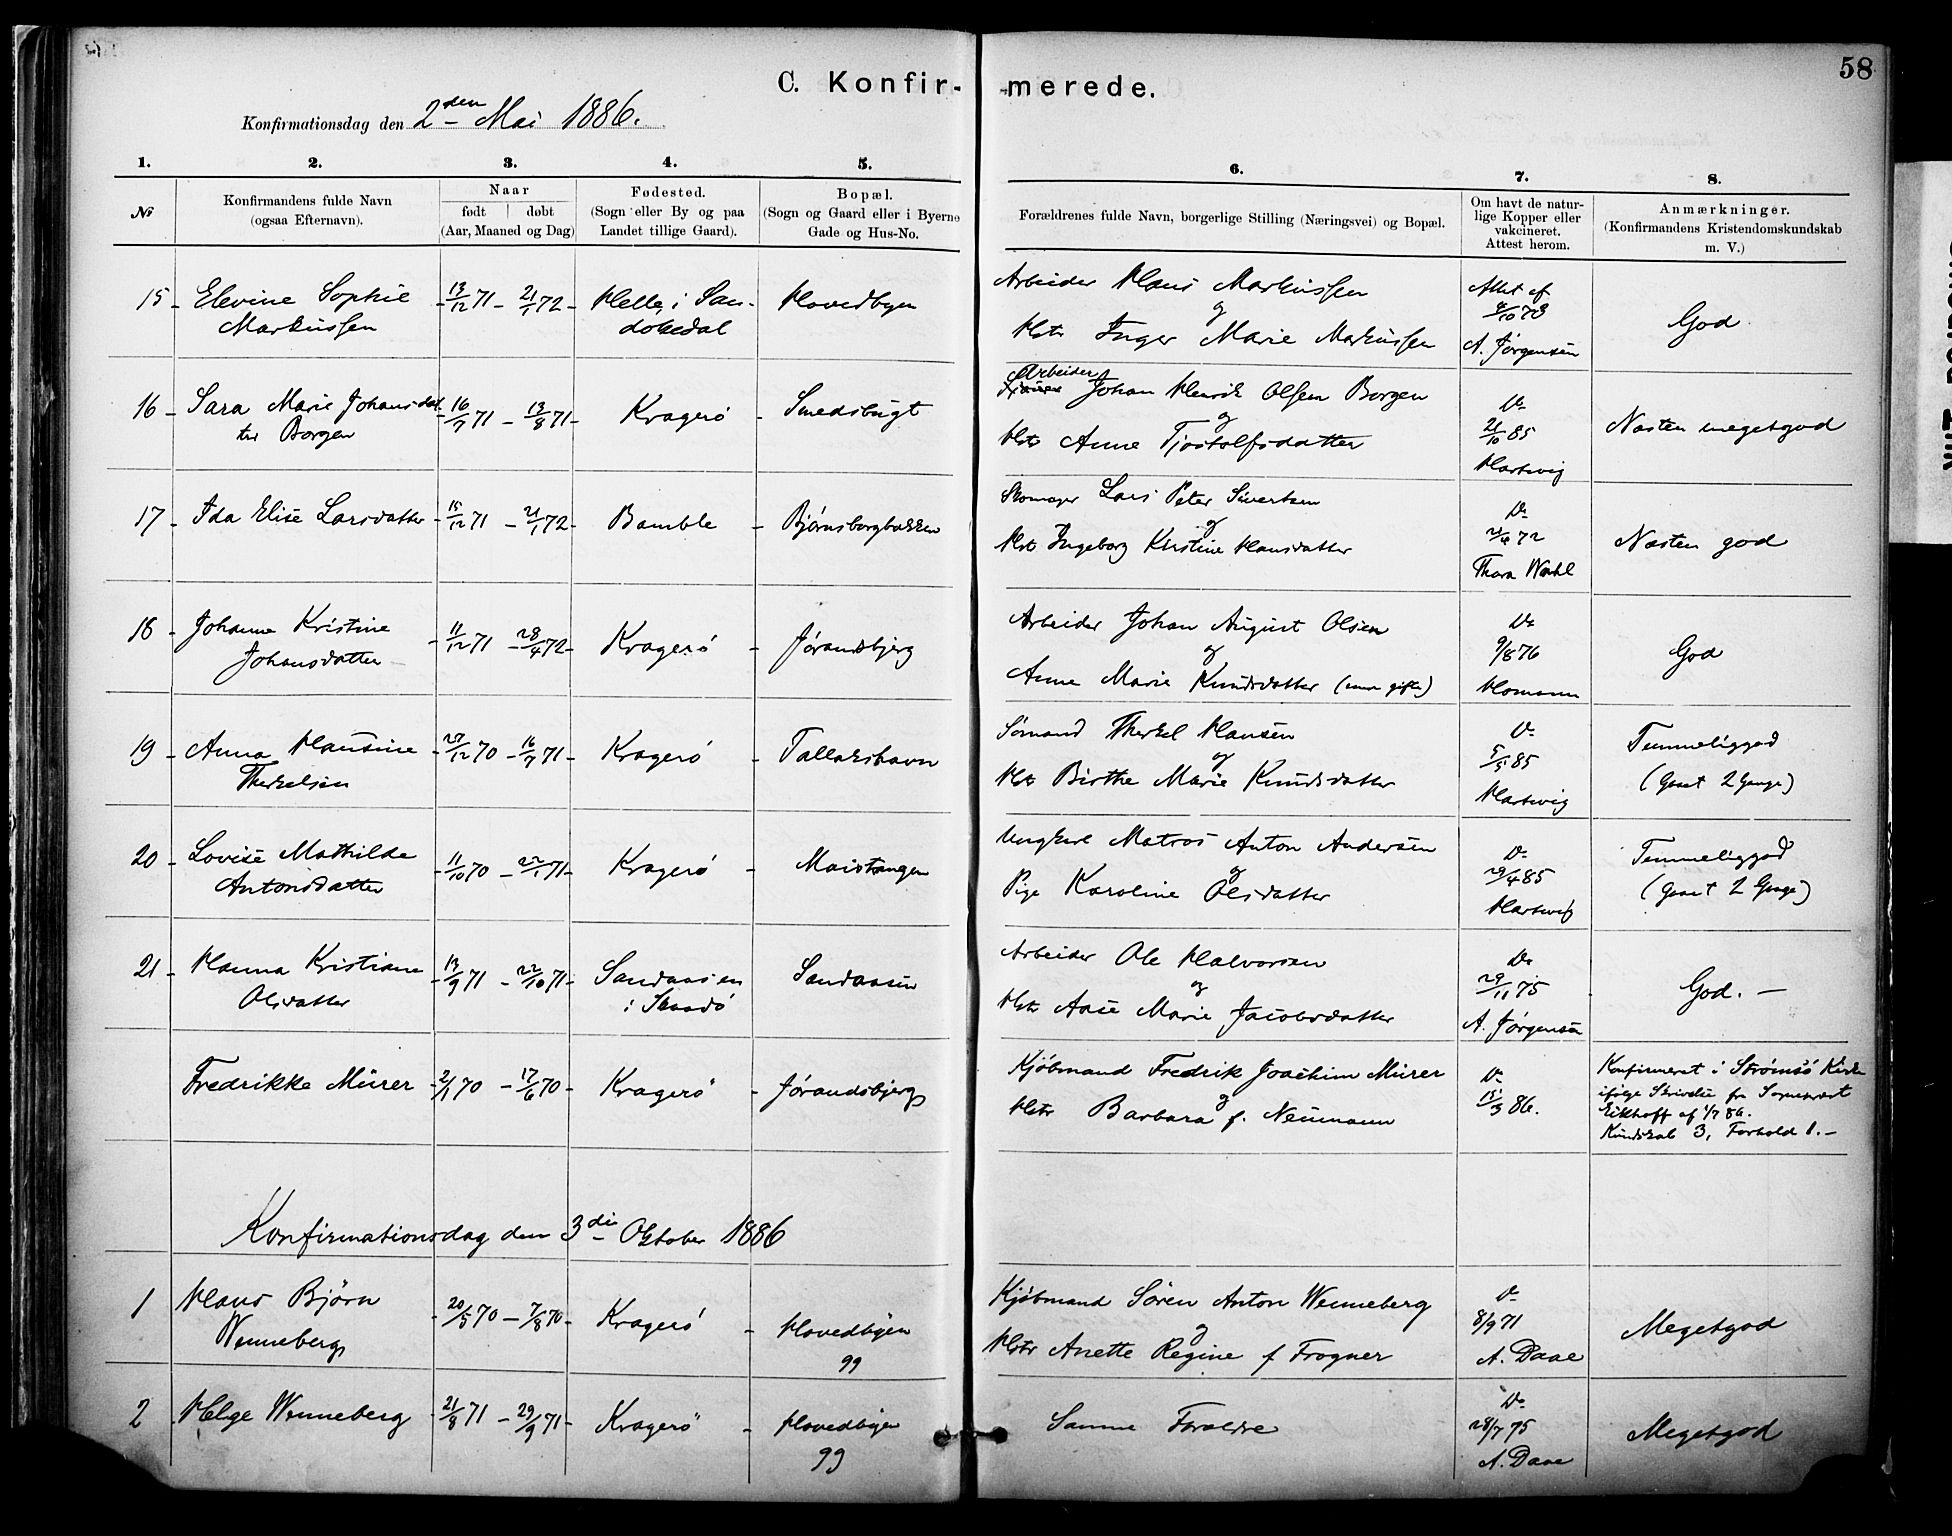 58
C. Konfir- merede.
Konfirmationsdag den 2den Mai 1886.
1. 2. 3. 4. 5. 6. 7. 8.
No
Konfirmandens fulde Navn
(ogsaa Efternavn).
Naar
født døbt
(Aar, Maaned og Dag)
Fødested.
(Sogn eller By og paa
Landet tillige Gaard).
Bopæl.
(Sogn og Gaard eller i Byerne
Gade og Hus-No.
Forældrenes fulde Navn, borgerlige Stilling (Næringsvei) og Bopæl.
Om havt de natur-
lige Kopper eller
vakcineret.
Attest herom.
Anmærkninger.
(Konfirmandens Kristendomskundskab
m. V.)
15 - Elevine Sophie
Markussen
13/12 71 - 21/1 72 -
Helle, i San-
dokedal
Hovedbyen
Arbeider Hans Markussen
og
Hstr Inger Marie Markussen
Attest af
/10 73
A. Jørgensen
God
16 - Sara Marie Johansdat
ter Borgen
16/7 71 - 13/8 71 -
Kragerø - Smedsbugt
Arbeider
Johan Henrik Olsen Borgen
og
Hstr Anne Tjostolfsdatter
Do
21/10 85
Hartvig
Næsten megetgod
17 - Ida Elise Larsdatter
15/12 71 - 21/1 72 -
Bamble - Bjørnsborgbakken
Skomager Lars Peter Sivertsen
og
Hstr Ingeborg Kristine Hansdatter
Do
/6 72
Thora Wahl
Næsten god
18 - Johanne Kristine
Johansdatter
11/12 71 - 28/4 72 -
Kragerø - Jørandsbjerg
Arbeider Johan August Olsen
og
Anne Marie Knudsdatter
Do
9/8 76
Homann
God
19 - Anna Hansine
Therkelsen
27/12 70 - 16/7 71 -
Kragerø - Tallakshavn
Sømand Therkel Hansen
og
Hstr Birthe Marie Knudsdatter
Do
5/5 85
Hartvig
Temmeliggod
(Gaaet 2 Gange)
20 - Lovise Mathilde
Antonsdatter
11/10 70 - 22/1 71 -
Kragerø - Maistangen
Ungkarl Matros Anton Andersen
og
Pige Karoline Olsdatter
Do
29/4 85
Hartvig
Temmeliggod
(Gaaet 2 Gange)
21 - Hanna Kristiane
Olsdatter
13/9 71 - 22/10 71 -
Sandaasen
i Skaadø
Sandaasen
Arbeider Ole Halvorsen
og
Hstr Aase Marie Jacobsdatter
Do
29/11 75
A. Jørgensen
God. -
Fredrikke Mürer
2/1 70 - 17/6 70 -
Kragerø - Jørandsbjerg
Kjøbmand Fredrik Joachim Mürer
og
Hstr Barbara f. Neumann
Do
15/3 86.
Konfirmeret i Strømsø Kirke
ifølge Skrivelse fra Sogneprest
Eikhoff af 1/7 86.
Kundskab 3, Forhold 1. -
Konfirmationsdag den 3die Oktober 1886
1 Hans Bjørn
Wenneberg
20/5 70 - 7/8 70 -
Kragerø - Hovedbyen
99
Kjøbmand Søren Anton Wenneberg
og
Hstr Anette Regine f Frogner
Do
8/9 71
A. Daae
Megetgod
2 - Helge Wenneberg
21/8 71 - 29/9 71 -
Kragerø - Hovedbyen
99
Samme Forældre
Do
28/7 75
A. Daae
Megetgod